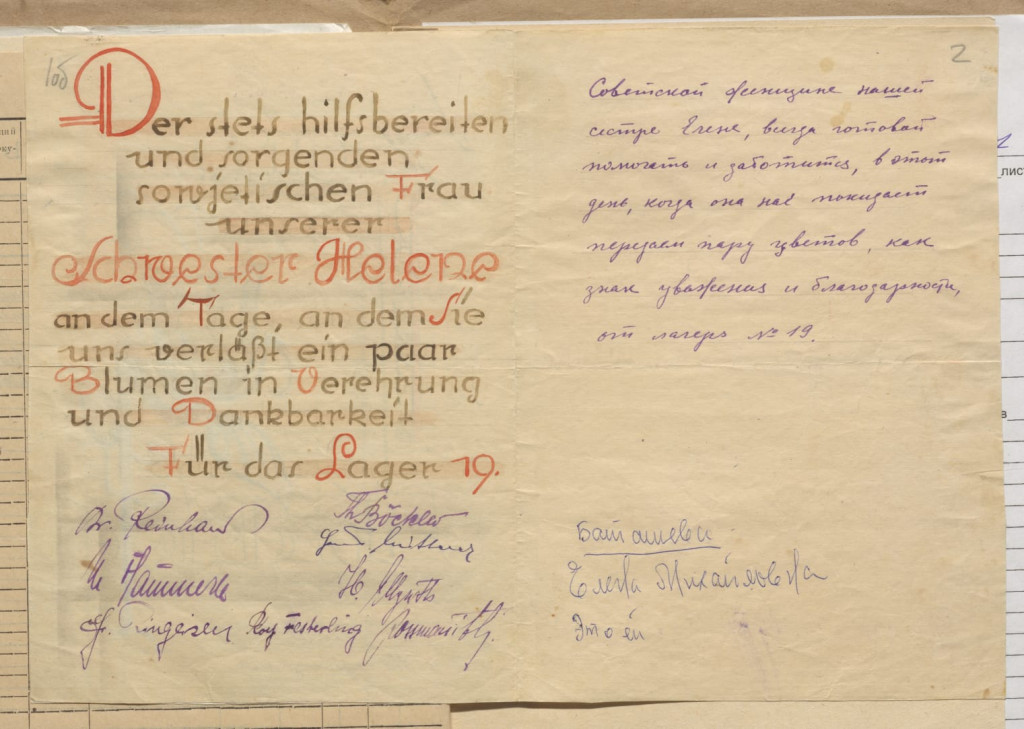 1об
Der stets hilfsbereiten
und sorgenden
sowjetischen Frau
unserer
Schwester Helene
an dem Tage, an dem Sie
uns verläßt ein paar
Blumen in Verehrung
und Dankbarkeit
Für das Lager 19.
Dr. Reinhard
Th Böckler
H.
2
Советской женщине нашей
сестре Елене, всегда готовой
помогать и заботится, в этот
день, когда она нас покидает
передаем пару цветов, как
знак уважения и благодарности,
от лагеря № 19.
Баташева
Елена Михайловна
Это ей
лист